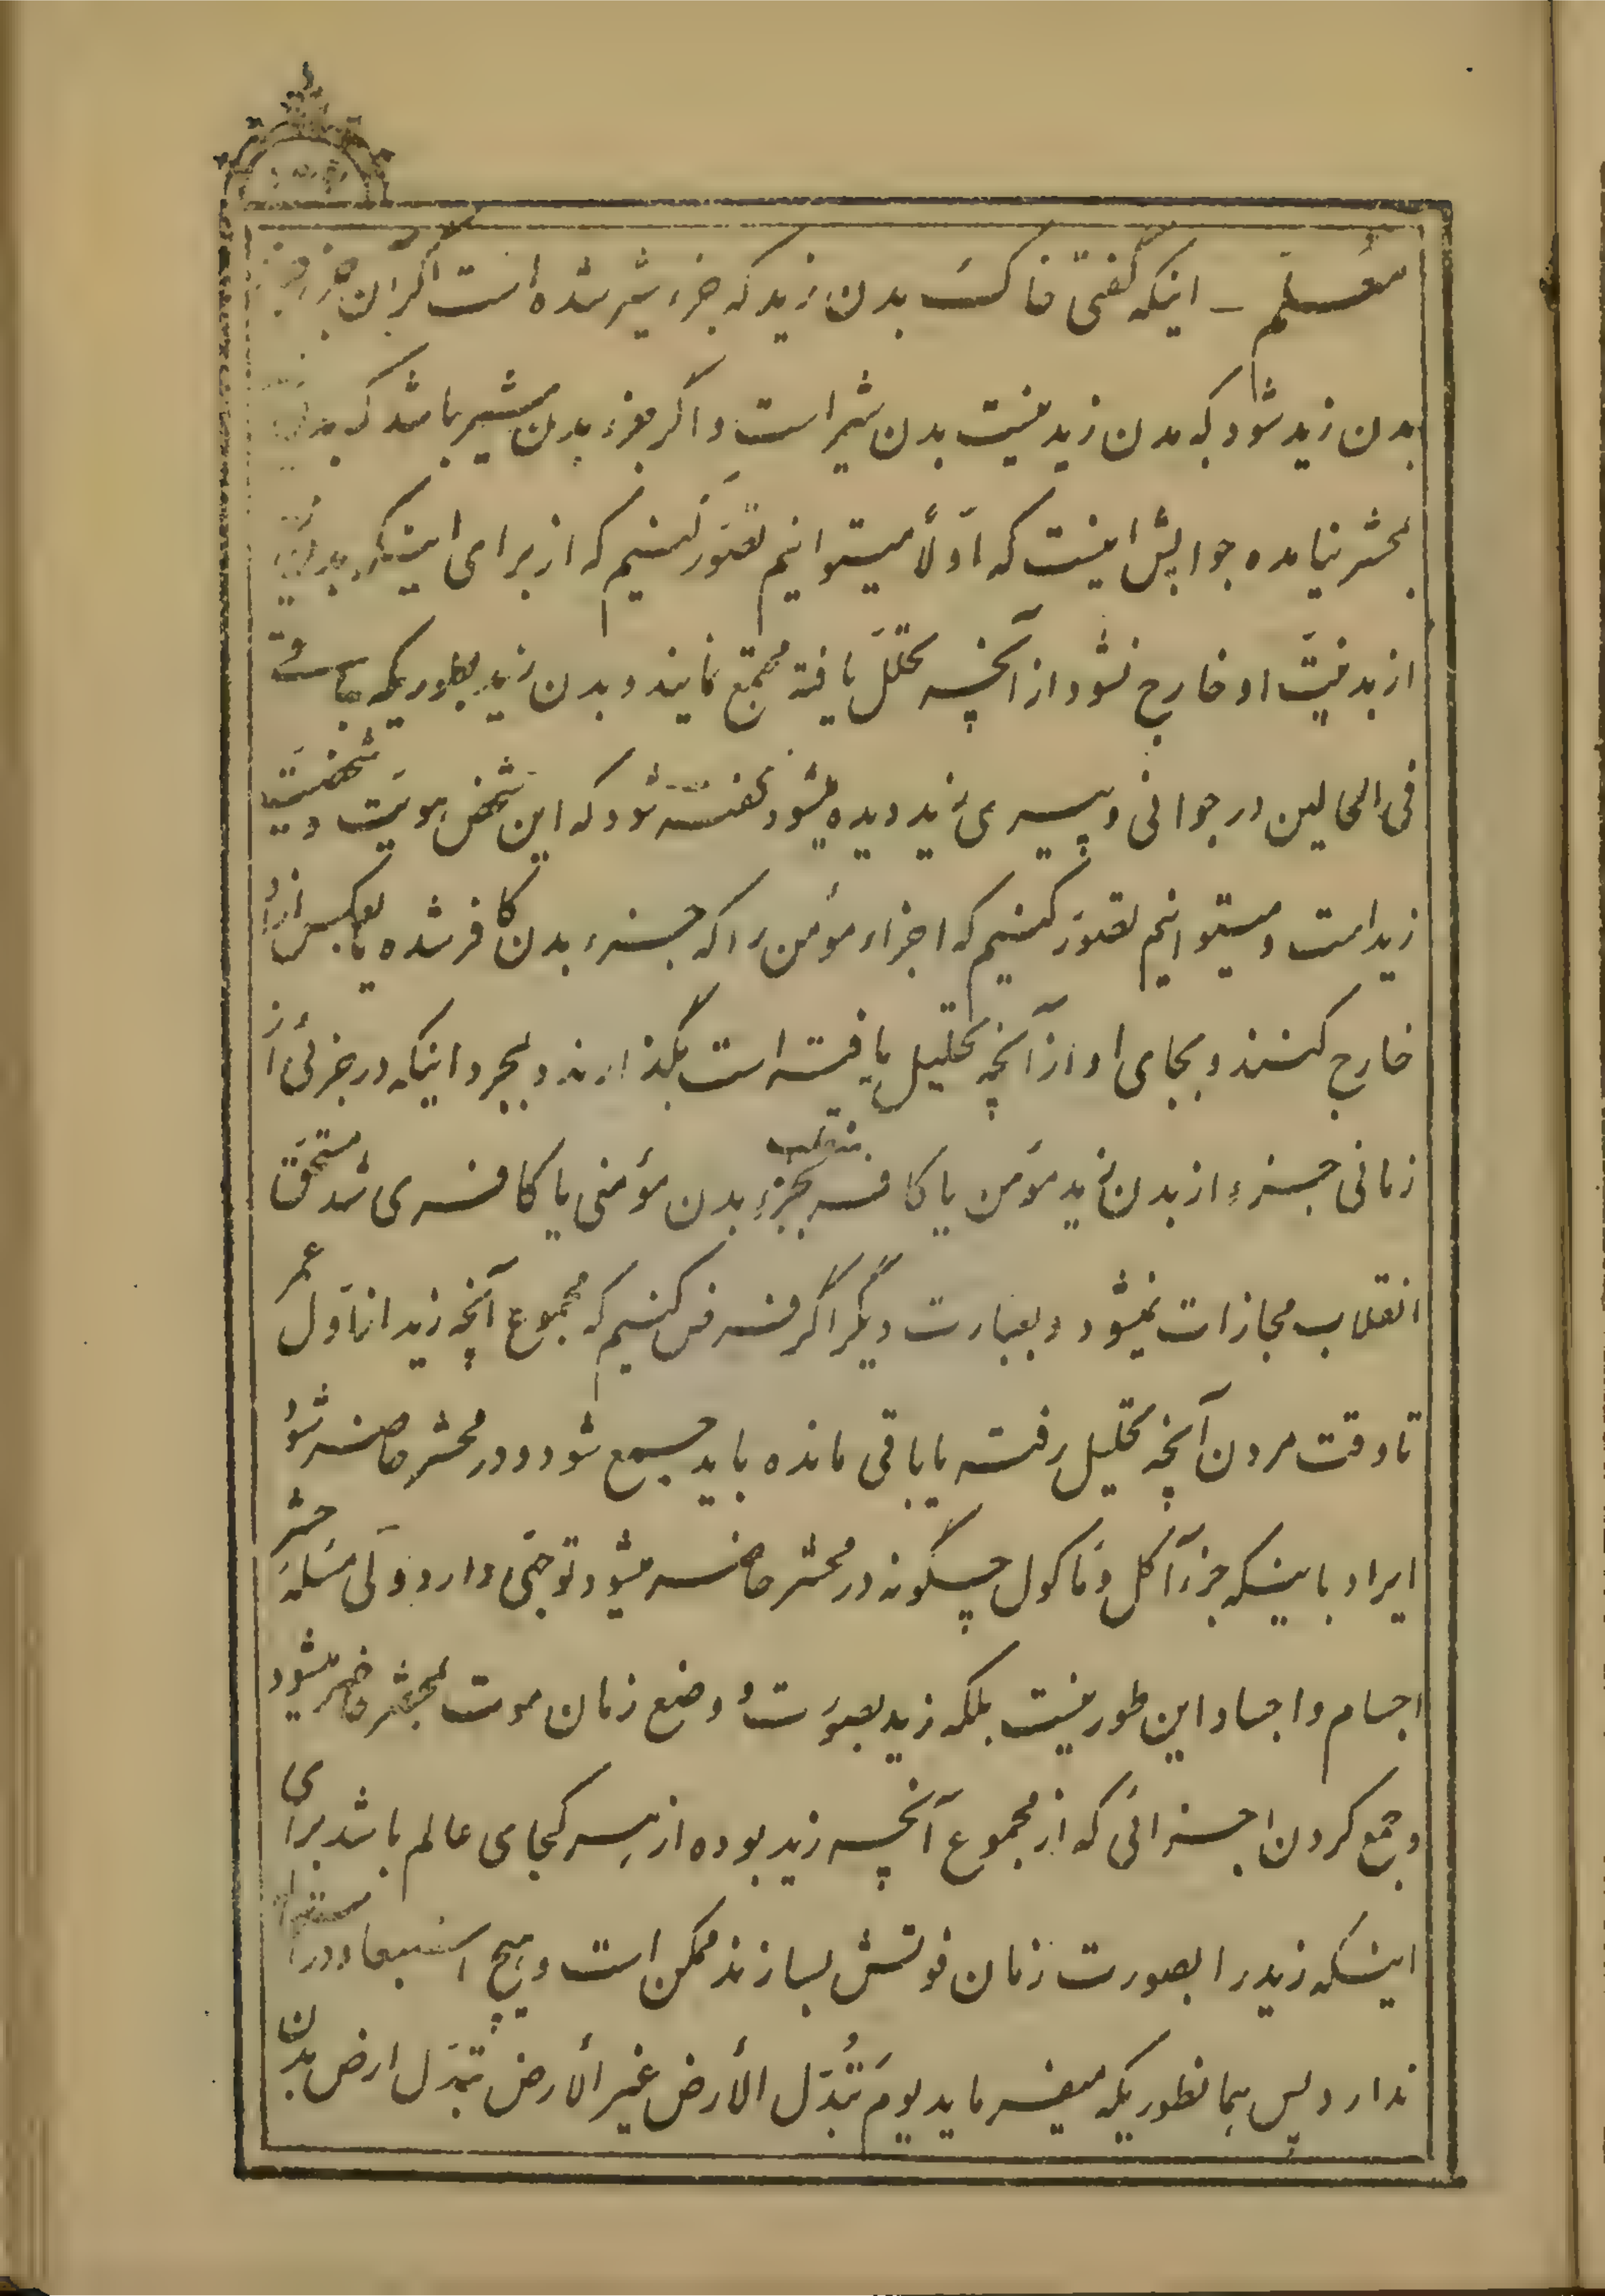 معلم ـ اینکه گفتی خاک بدن زید که جزء شیر شده است اگر آن جزء
بدن زید شود که بدن زید نیست بدن شیر است و اگر جزء بدن شیر باشد که بدن
بحشر نیامده جوابش اینست که اوّلاً میتوانیم تصوّر کنیم که از برای اینکه بدن
از بدنیّت او خارج نشود از آنچه تحلّل یافته مجتمع نمایند و بدن زید بطوریکه
فی الحالین در جوانی و پیری زید دیده میشود گفته شود که این شخص هویّت و شخصیّت
زید است و میتوانیم تصوّر کنیم که اجزاء مؤمن را که جزء بدن کافر شده یا بعکس از او
خارج کنند و بجای او از آنچه تحلیل یافته است بگذارند و بمجرد اینکه در جزئی از
زمانی جزء از بدن زید مؤمن یا کافر منقلب بجزء بدن مؤمنی یا کافری شد مستحقّ
انقلاب مجازات نمیشود و بعبارت دیگر اگر فرض کنیم که مجموع آنچه زید از اوّل عمر
تا وقت مردن آنچه تحلیل رفته یا باقی مانده باید جمع شود و در محشر حاضر شود
ایراد باینکه جزء آکل و مأکول چگونه در محشر حاضر میشود توجّهی دارد ولی مسئله حشر
اجسام و اجساد این طور نیست بلکه زید بصورت و وضع زمان موت بمحشر حاضر میشود
و جمع کردن اجزائی که از مجموع آنچه زید بوده از هر کجای عالم باشد برای
اینکه زید را بصورت زمان فوتش بسازند ممکن است و هیچ استبعاد در
ندارد پس همانطوریکه میفرماید یَومَ تُبَدَّل الأرض غیر الأرض تبدّل ارض بدن